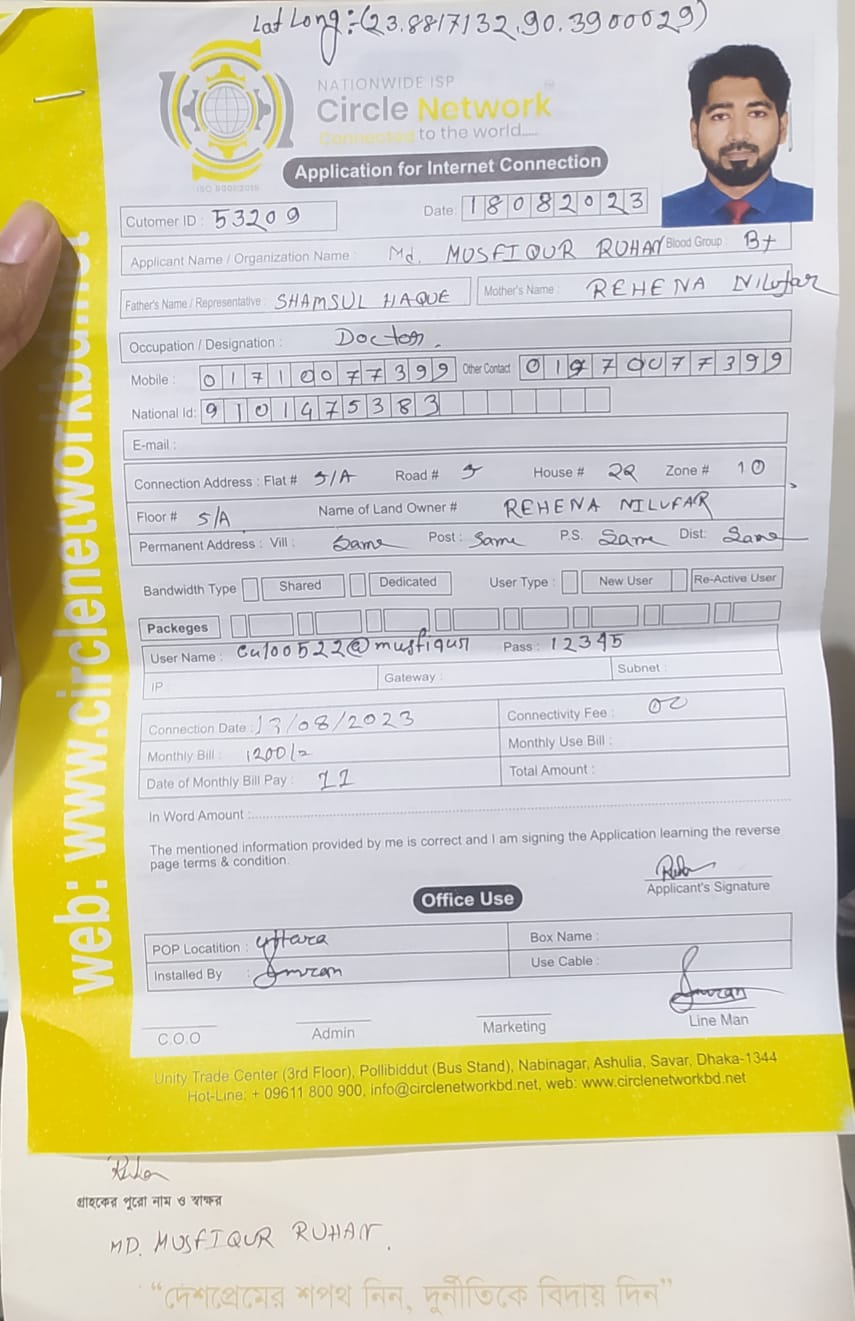 Lat Long:-(23.8817132,90.3900029)
NATIONWIDE ISP
Circle Network
Connected to the world.....
ISO 9001:2015
Application for Internet Connection
Cutomer ID : 53209 Date: 18082023
Applicant Name / Organization Name : Md. MUSFIQUR RUHAN Blood Group : B+
Father's Name / Representative : SHAMSUL HAQUE Mother's Name : REHENA Nilufar
Occupation / Designation : Doctor.
Mobile : 01710077399 Other Contact 01970077399
National Id: 9101475383
E-mail :
Connection Address : Flat # 5/A Road # 5 House # 22 Zone # 10
Floor # 5/A Name of Land Owner # REHENA NILUFAR
Permanent Address : Vill : Same Post : Same P.S. Same Dist: Same
Bandwidth Type Shared Dedicated User Type : New User Re-Active User
Packeges
User Name : cu100522@musfiqur Pass : 12345
IP Gateway : Subnet :
Connection Date : 13/08/2023 Connectivity Fee : 00
Monthly Bill : 1200/= Monthly Use Bill :
Date of Monthly Bill Pay : 11 Total Amount :
In Word Amount :
The mentioned information provided by me is correct and I am signing the Application learning the reverse
page terms & condition.
Applicant's Signature
Office Use
POP Locatition : Uttara Box Name :
Installed By : Imran Use Cable :
Imran
C.O.O Admin Marketing Line Man
Unity Trade Center (3rd Floor), Pollibiddut (Bus Stand), Nabinagar, Ashulia, Savar, Dhaka-1344
Hot-Line: + 09611 800 900, info@circlenetworkbd.net, web: www.circlenetworkbd.net
web: www.circlenetworkbd.net
গ্রাহকের পুরো নাম ও স্বাক্ষর
MD. MUSFIQUR RUHAN.
“দেশপ্রেমের শপথ নিন, দুর্নীতিকে বিদায় দিন”